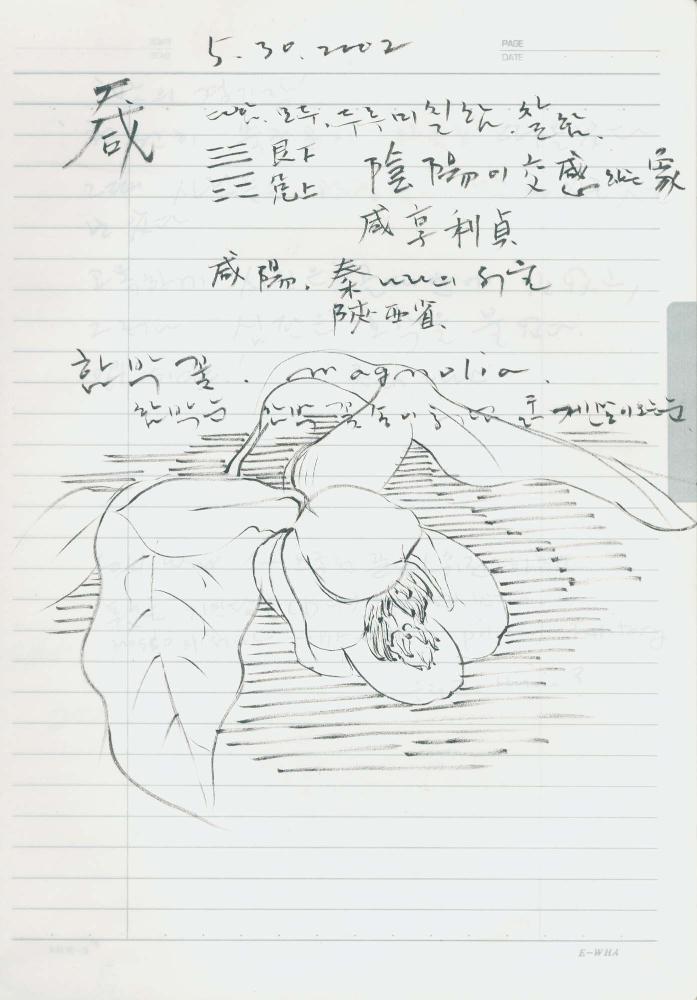 5.30.2002
PAGE
DATE
咸
다함. 모두. 두루 미칠 함. 찰 함.
艮下
兌上 陰陽이 交感하는 象
咸亨利貞
咸陽. 秦나라의 서울
陜西省.
함박꽃. magnolia.
함박은 함박꽃송이
E-WHA